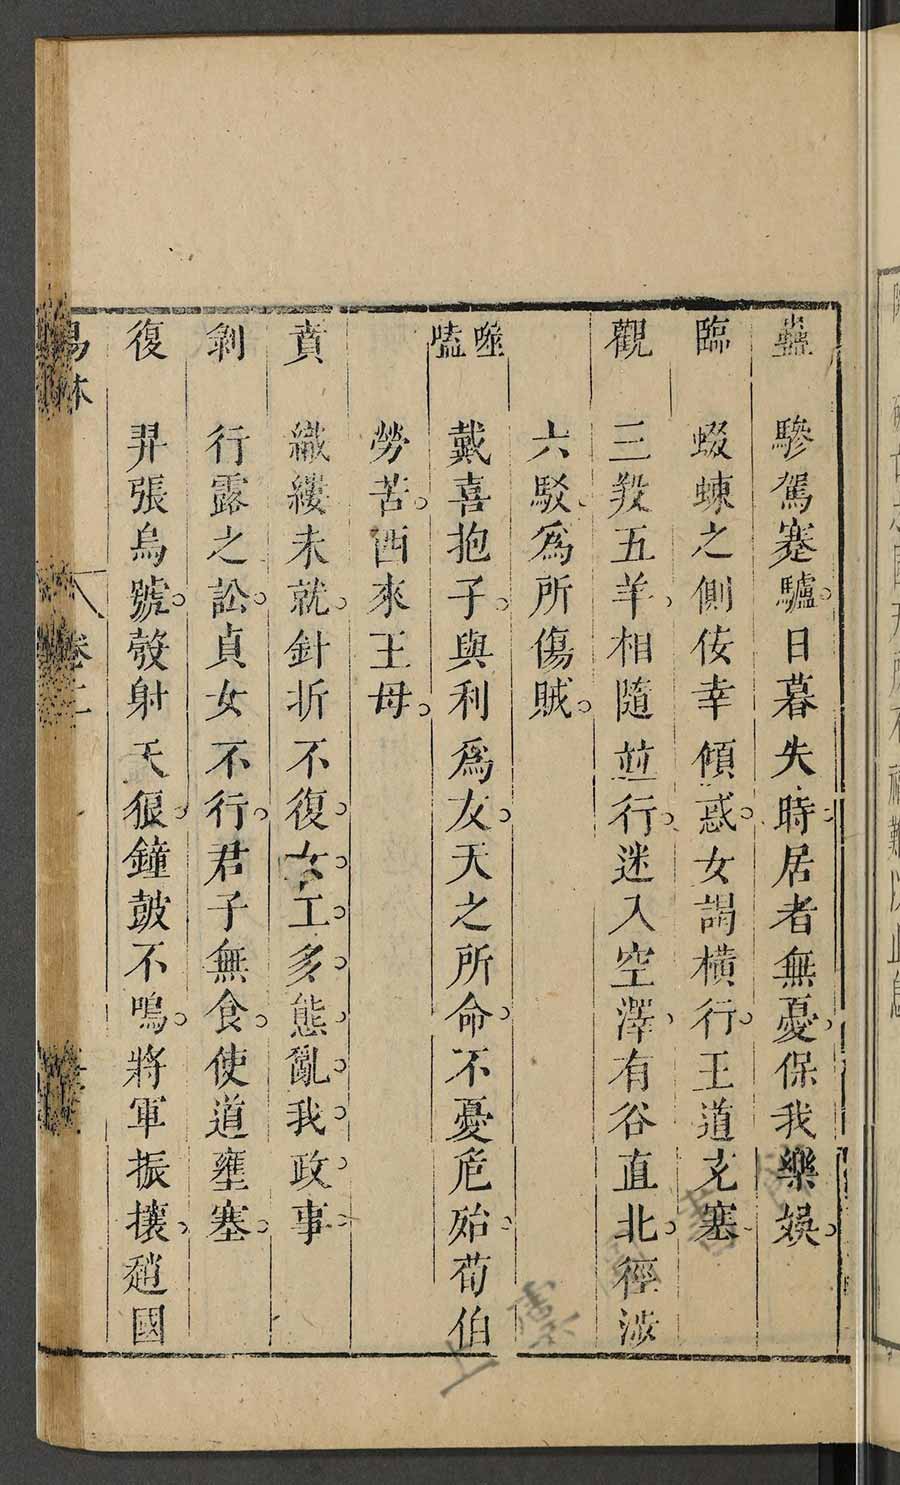 蠱 驂駕蹇驢日暮失時居者無憂保我樂娛
臨 蝃蝀之側佞幸傾惑女謁橫行王道充塞
觀 三羖五羊相隨並行迷入空澤有谷直北徑涉
六駁爲所傷賊
噬嗑 戴喜抱子與利爲友天之所命不憂危殆荀伯
勞苦西來王母
賁 織縷未就針折不復女工多態亂我政事
剝 行露之訟貞女不行君子無食使道壅塞
復 羿張烏號彀射天狼鐘鼓不鳴將軍振攘趙國
易林 卷二